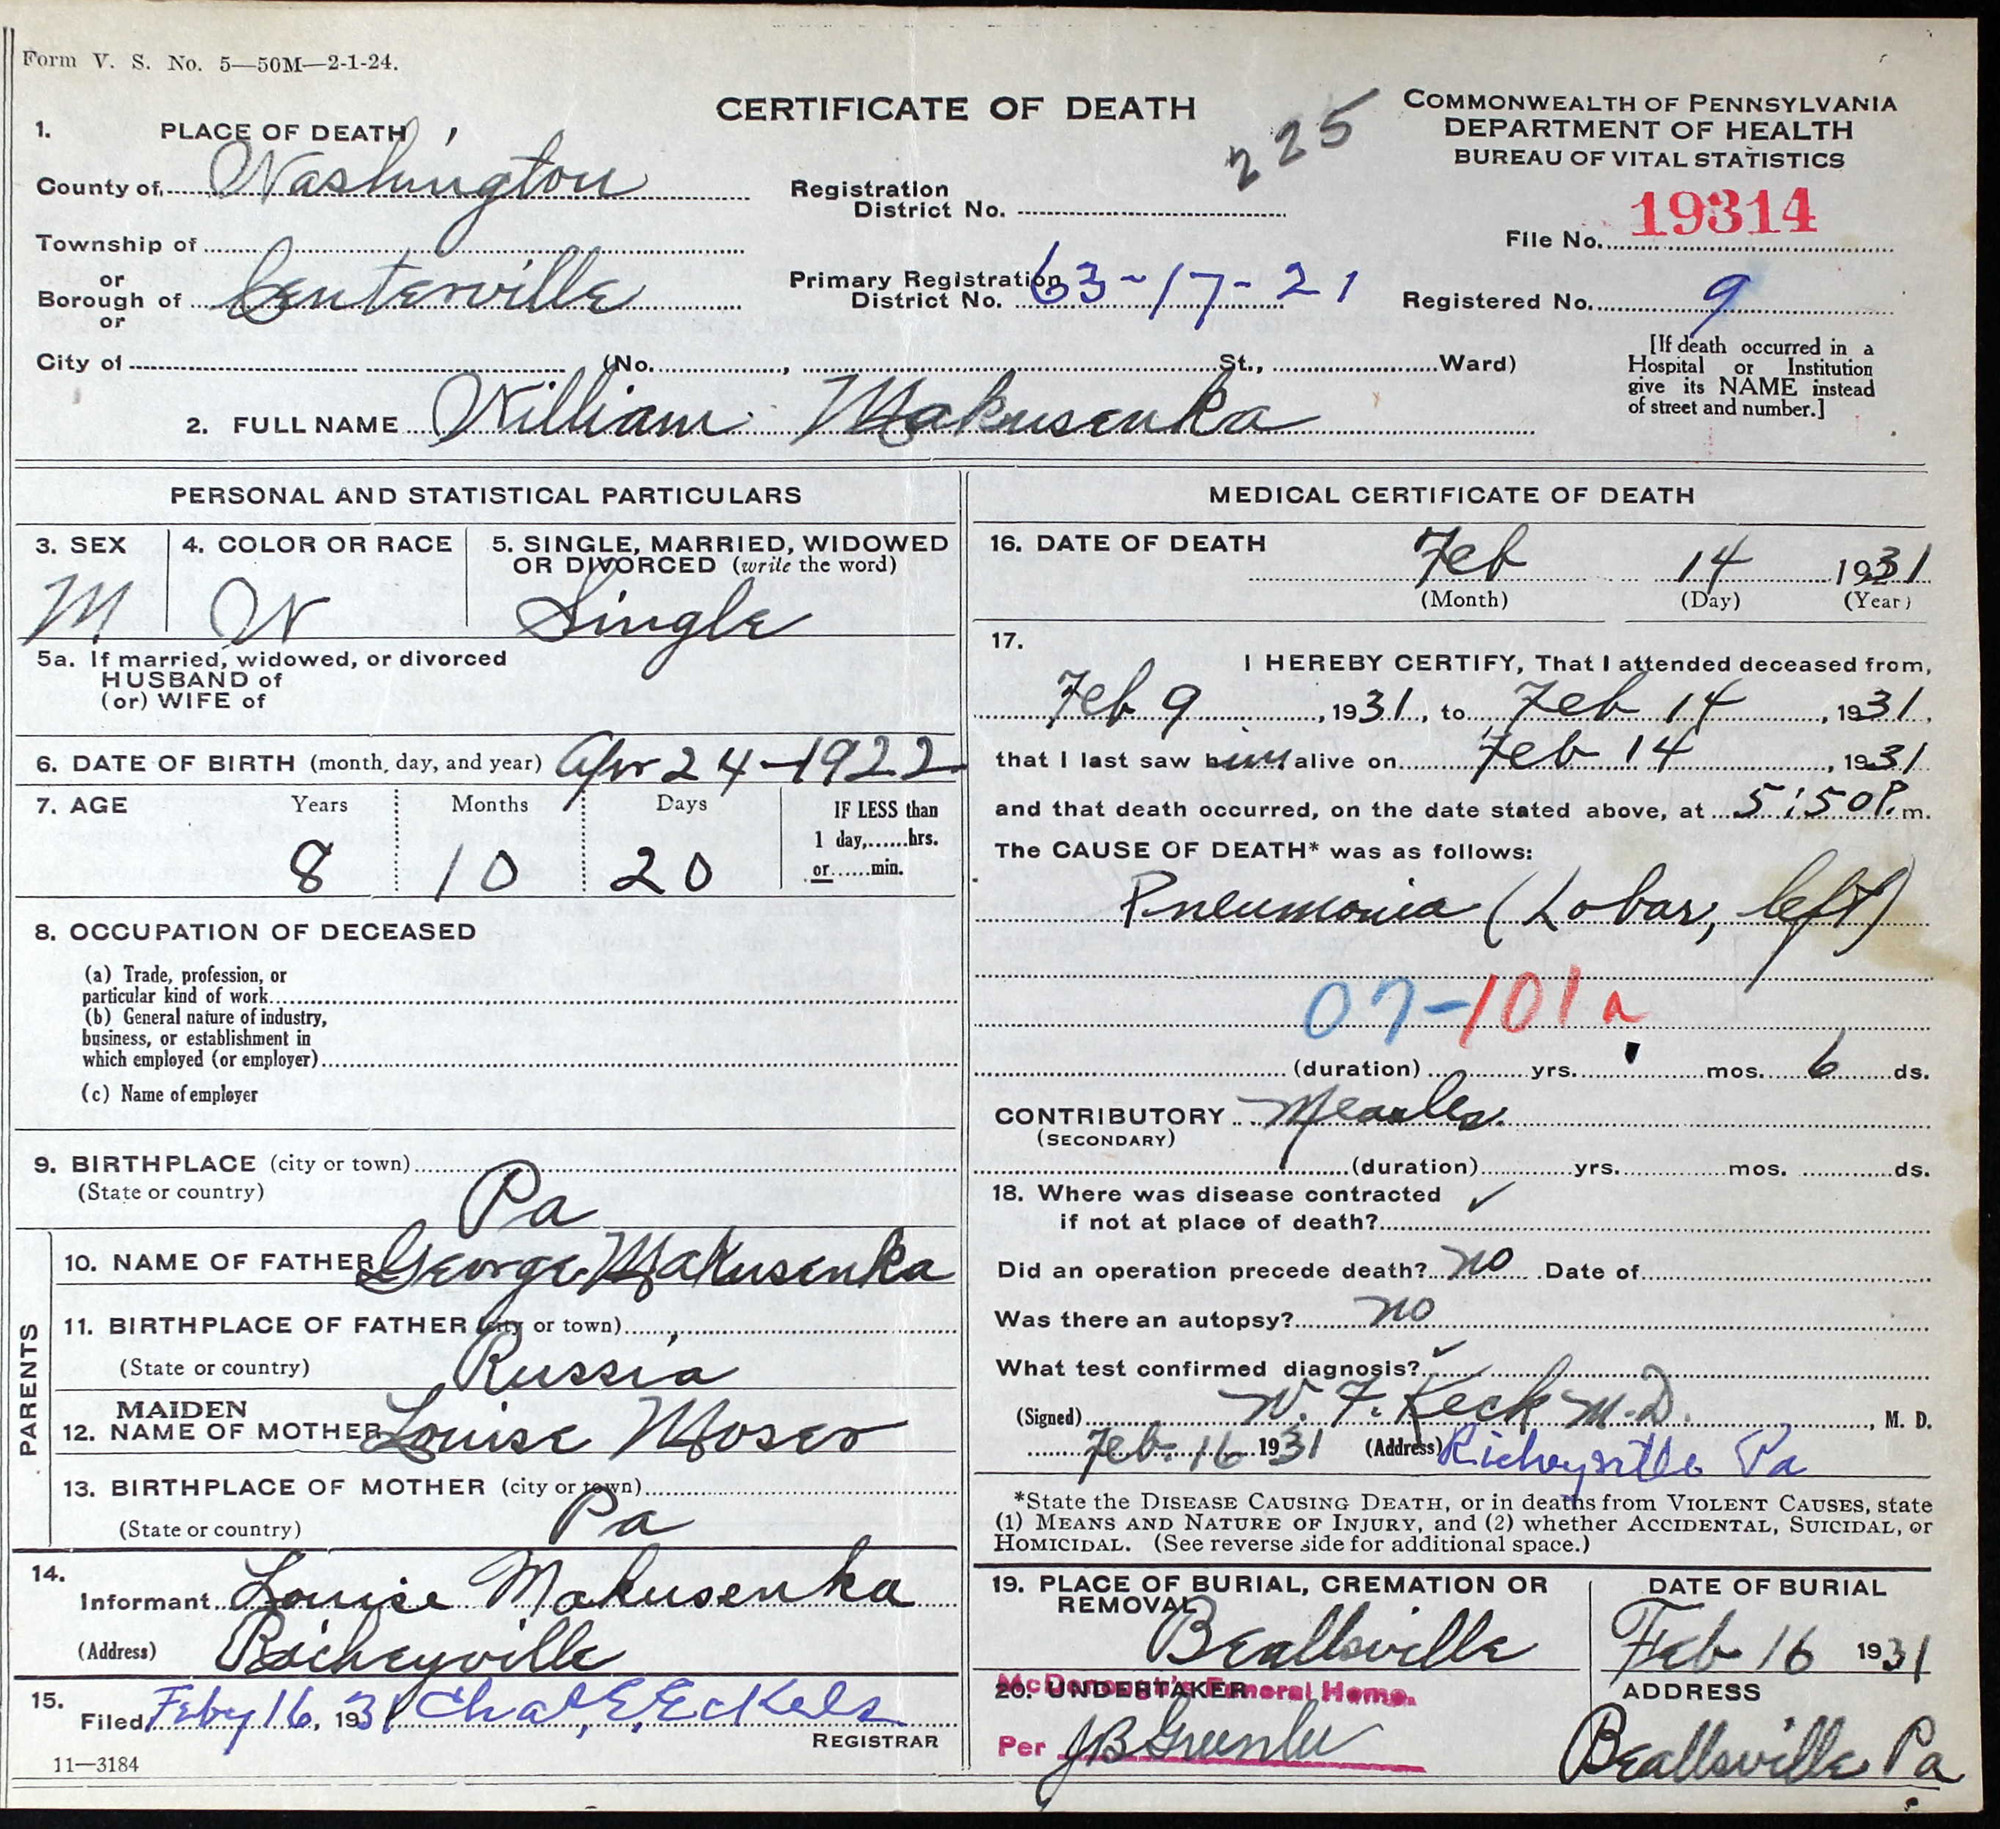 Form V. S. No. 5—50M—2-1-24.
CERTIFICATE OF DEATH
225
COMMONWEALTH OF PENNSYLVANIA
DEPARTMENT OF HEALTH
BUREAU OF VITAL STATISTICS
1. PLACE OF DEATH
County of Washington
Registration District No.
File No. 19314
Township of
or
Borough of Centerville
or
Primary Registration District No. 63-17-21
Registered No. 9
City of (No. , St., Ward)
[If death occurred in a
Hospital or Institution
give its NAME instead
of street and number.]
2. FULL NAME William Makusenka
PERSONAL AND STATISTICAL PARTICULARS
3. SEX M
4. COLOR OR RACE W
5. SINGLE, MARRIED, WIDOWED
OR DIVORCED (write the word)
Single
5a. If married, widowed, or divorced
HUSBAND of
(or) WIFE of
6. DATE OF BIRTH (month, day, and year) Apr 24-1922
7. AGE Years Months Days IF LESS than
1 day,......hrs.
or......min.
8 10 20
8. OCCUPATION OF DECEASED
(a) Trade, profession, or
particular kind of work
(b) General nature of industry,
business, or establishment in
which employed (or employer)
(c) Name of employer
9. BIRTHPLACE (city or town)
(State or country) Pa
PARENTS
10. NAME OF FATHER George Makusenka
11. BIRTHPLACE OF FATHER (city or town)
(State or country) Russia
12. MAIDEN NAME OF MOTHER Louise Moser
13. BIRTHPLACE OF MOTHER (city or town)
(State or country) Pa
14.
Informant Louise Makusenka
(Address) Richeyville
15.
Filed Feby 16, 1931 Chas. E. Eckels
REGISTRAR
11—3184
MEDICAL CERTIFICATE OF DEATH
16. DATE OF DEATH Feb 14 1931
(Month) (Day) (Year)
17.
I HEREBY CERTIFY, That I attended deceased from,
Feb 9, 1931, to Feb 14, 1931,
that I last saw him alive on Feb 14, 1931
and that death occurred, on the date stated above, at 5:50 P. m.
The CAUSE OF DEATH* was as follows:
Pneumonia (Lobar, left)
07-101a
(duration) yrs. mos. 6 ds.
CONTRIBUTORY Measles.
(SECONDARY)
(duration) yrs. mos. ds.
18. Where was disease contracted
if not at place of death? ✓
Did an operation precede death? no Date of
Was there an autopsy? no
What test confirmed diagnosis? ✓
(Signed) W. F. Keck M.D. , M. D.
Feb. 16 1931 (Address) Richeyville Pa
*State the DISEASE CAUSING DEATH, or in deaths from VIOLENT CAUSES, state
(1) MEANS AND NATURE OF INJURY, and (2) whether ACCIDENTAL, SUICIDAL, or
HOMICIDAL. (See reverse side for additional space.)
19. PLACE OF BURIAL, CREMATION OR
REMOVAL
Beallsville
DATE OF BURIAL
Feb 16 1931
McDonough's Funeral Home.
20. UNDERTAKER
Per JB Greenlee
ADDRESS
Beallsville Pa